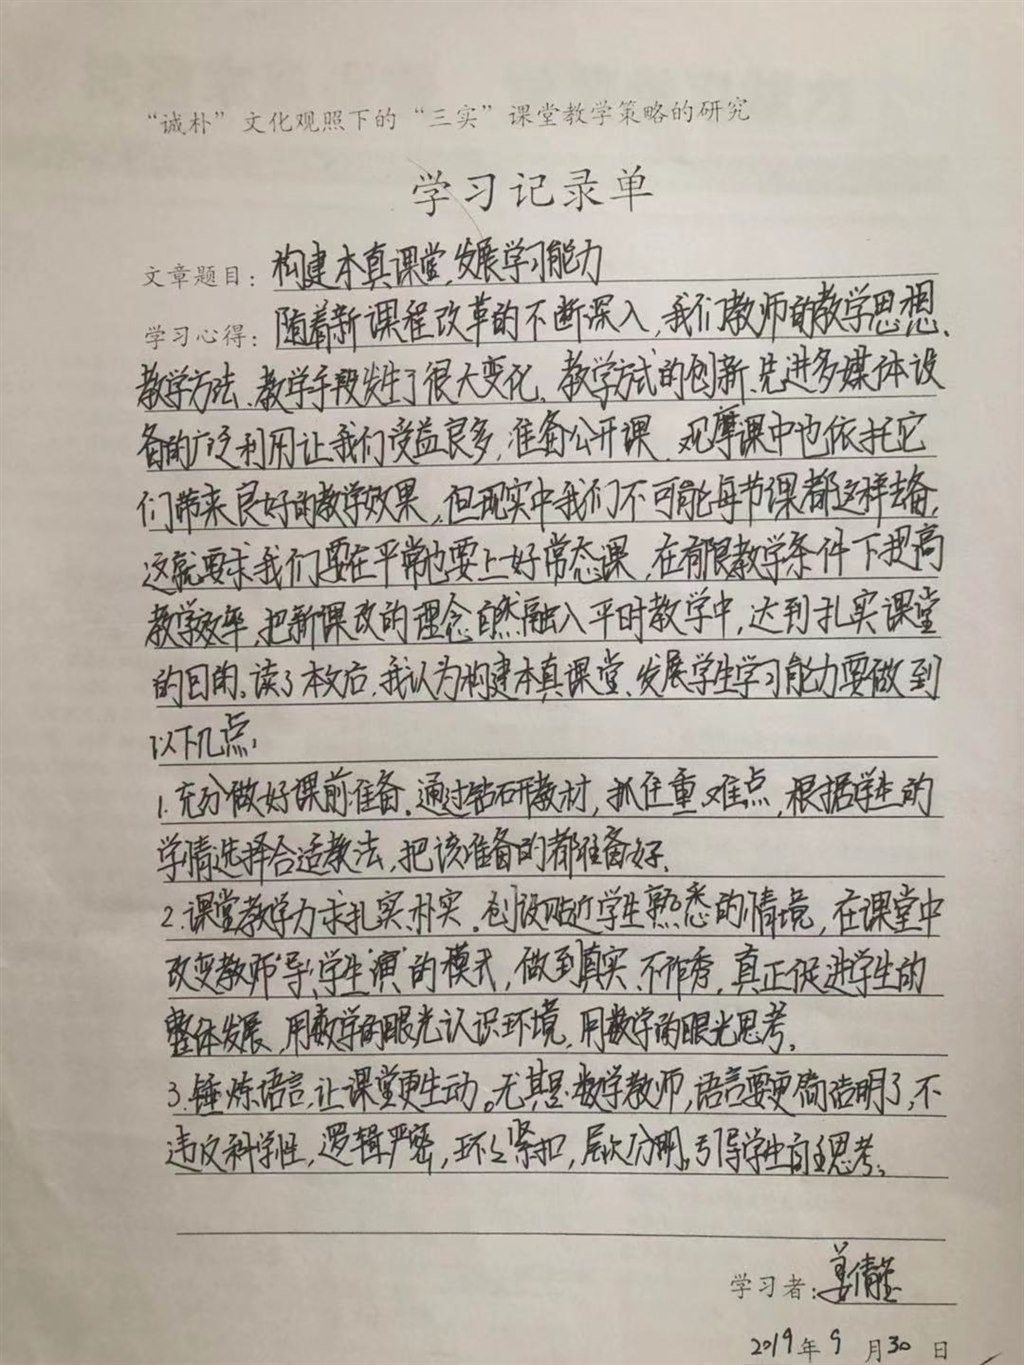 “诚朴”文化观照下的“三实”课堂教学策略的研究
学习记录单
文章题目：构建本真课堂，发展学习能力
学习心得：随着新课程改革的不断深入，我们教师的教学思想、
教学方法、教学手段发生了很大变化。教学方式的创新、先进多媒体设
备的广泛利用让我们受益良多，准备公开课、观摩课中也依托它
们带来良好的教学效果，但现实中我们不可能每节课都这样去备，
这就要求我们要在平常也要上好常态课，在有限教学条件下提高
教学效率，把新课改的理念自然融入平时教学中，达到扎实课堂
的目的。读了本文后，我认为构建本真课堂、发展学生学习能力要做到
以下几点：
1.充分做好课前准备。通过钻研教材，抓住重难点，根据学生的
学情选择合适教法，把该准备的都准备好。
2.课堂教学力求扎实朴实。创设贴近学生熟悉的情境，在课堂中
改变教师“导”、学生“演”的模式，做到真实、不作秀，真正促进学生的
整体发展，用数学的眼光认识环境，用数学的眼光思考。
3.锤炼语言，让课堂更生动。尤其是数学教师，语言要更简洁明了，不
违反科学性，逻辑严密，环环紧扣，层次分明。引导学生自主思考。
学习者：姜倩
2019年9月30日